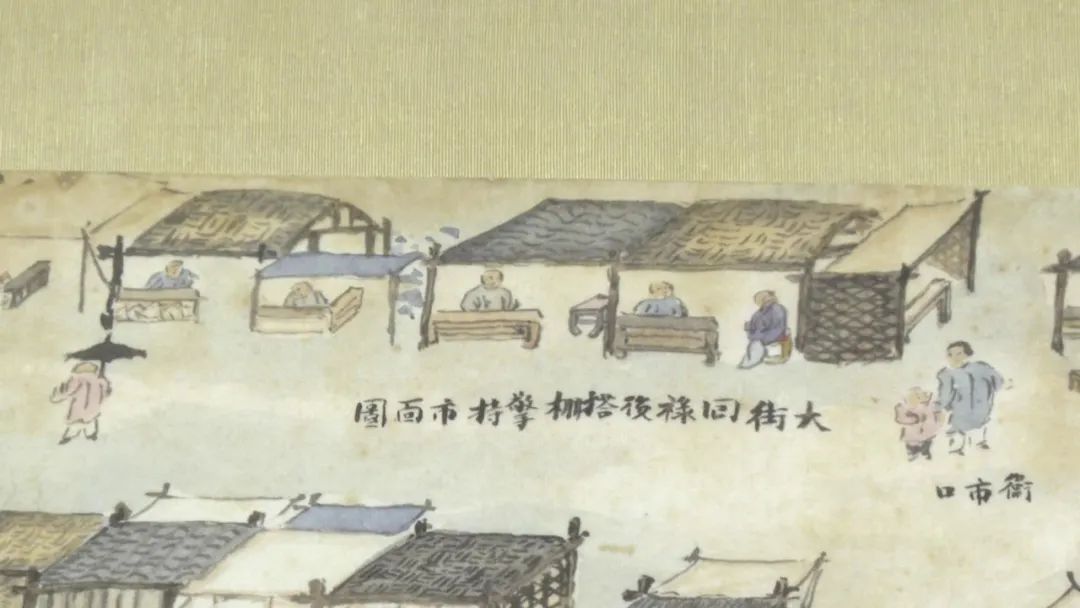 大街回祿後搭棚擎持市面圖
衞市口